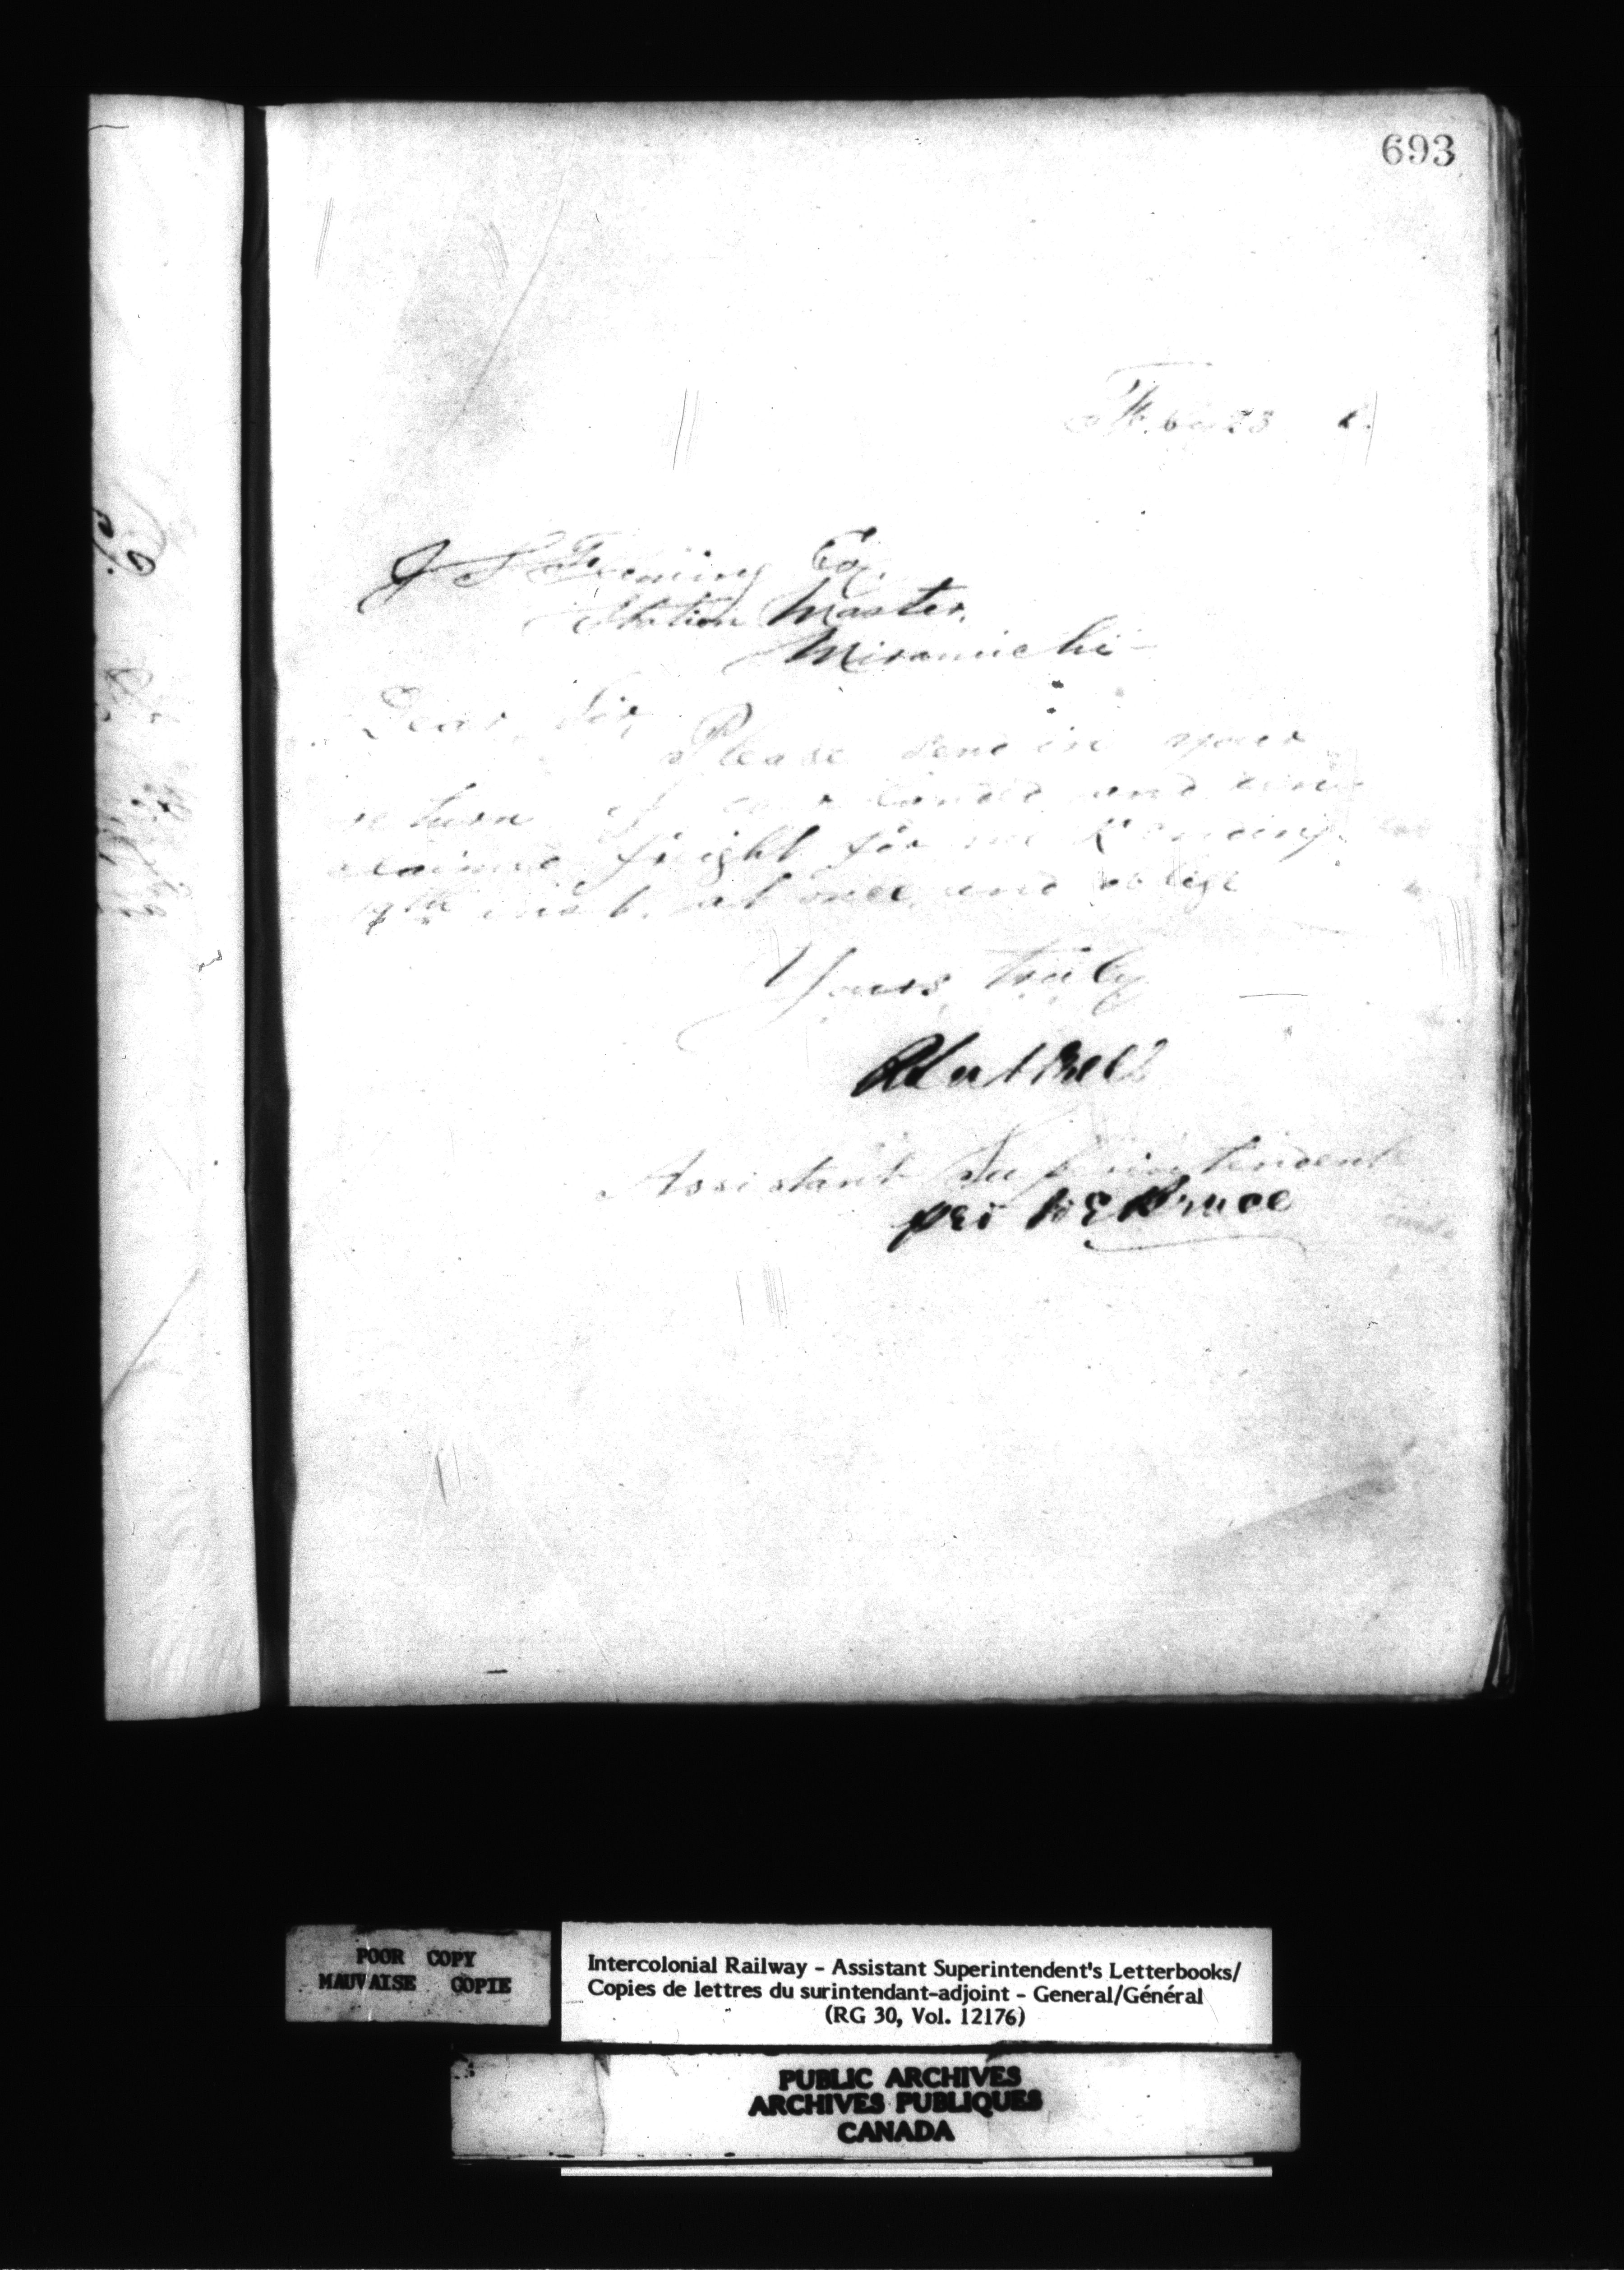 693
Feby 23
J S Fleming Esq.
Station Master,
Miramichi
Dear Sir,
Please send in your
return of over landed and un
claimed freight for we Kending
9th inst. at once and oblige
Yours truly
Assistant Superintendent
per
Bruce
POOR COPY
MAUVAISE COPIE
Intercolonial Railway - Assistant Superintendent's Letterbooks/
Copies de lettres du surintendant-adjoint - General/Général
(RG 30, Vol. 12176)
PUBLIC ARCHIVES
ARCHIVES PUBLIQUES
CANADA